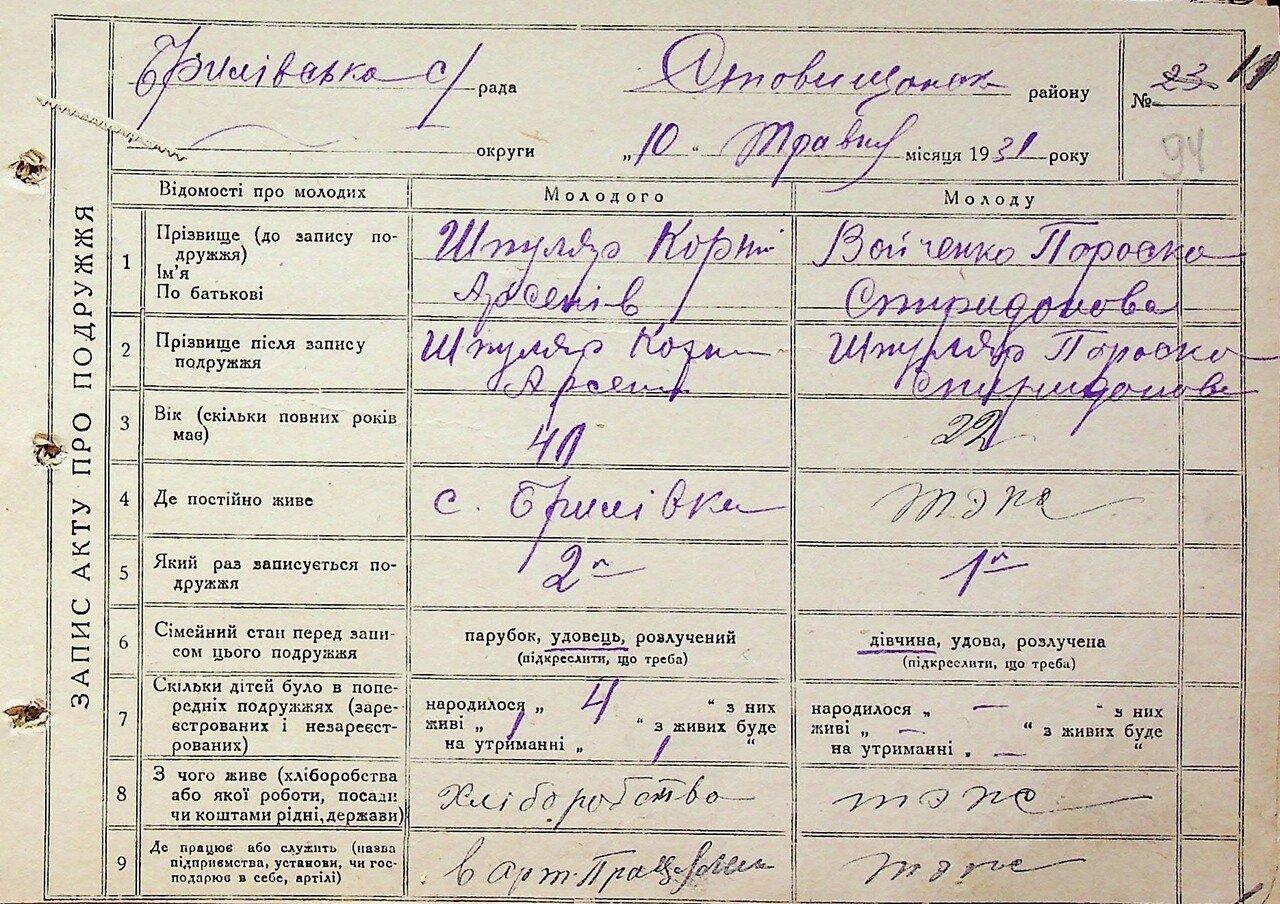 ЗАПИС АКТУ ПРО ПОДРУЖЖЯ
Брилівська с/ рада
району
№ 23
94
округи „10“ Травня місяця 1931 року
Відомості про молодих Молодого Молоду
1 Прізвище (до запису по-
дружжя)
Ім'я
По батькові
Шпуляр Корній
Арсенів
Войченко Пороска
Спиридонова
2 Прізвище після запису
подружжя
Шпуляр
Арсенів
Шпуляр Пороска
Спиридонова
3 Вік (скільки повних років
має)
22
4 Де постійно живе с. Брилівка
5 Який раз записується по-
дружжя
2й
1й
6 Сімейний стан перед запи-
сом цього подружжя
парубок, удовець, розлучений
(підкреслити, що треба)
дівчина, удова, розлучена
(підкреслити, що треба)
7 Скільки дітей було в попе-
редніх подружжях (заре-
єстрованих і незареєст-
рованих)
народилося „ 4 “ з них
живі „ 1 “ з живих буде
на утриманні „ 1 “
народилося „ — “ з них
живі „ — “ з живих буде
на утриманні „ — “
8 З чого живе (хліборобства
або якої роботи, посади
чи коштами рідні, держави)
Хліборобство
9 Де працює або служить (назва
підприємства, установи, чи гос-
подарює в себе, артілі)
в арт.